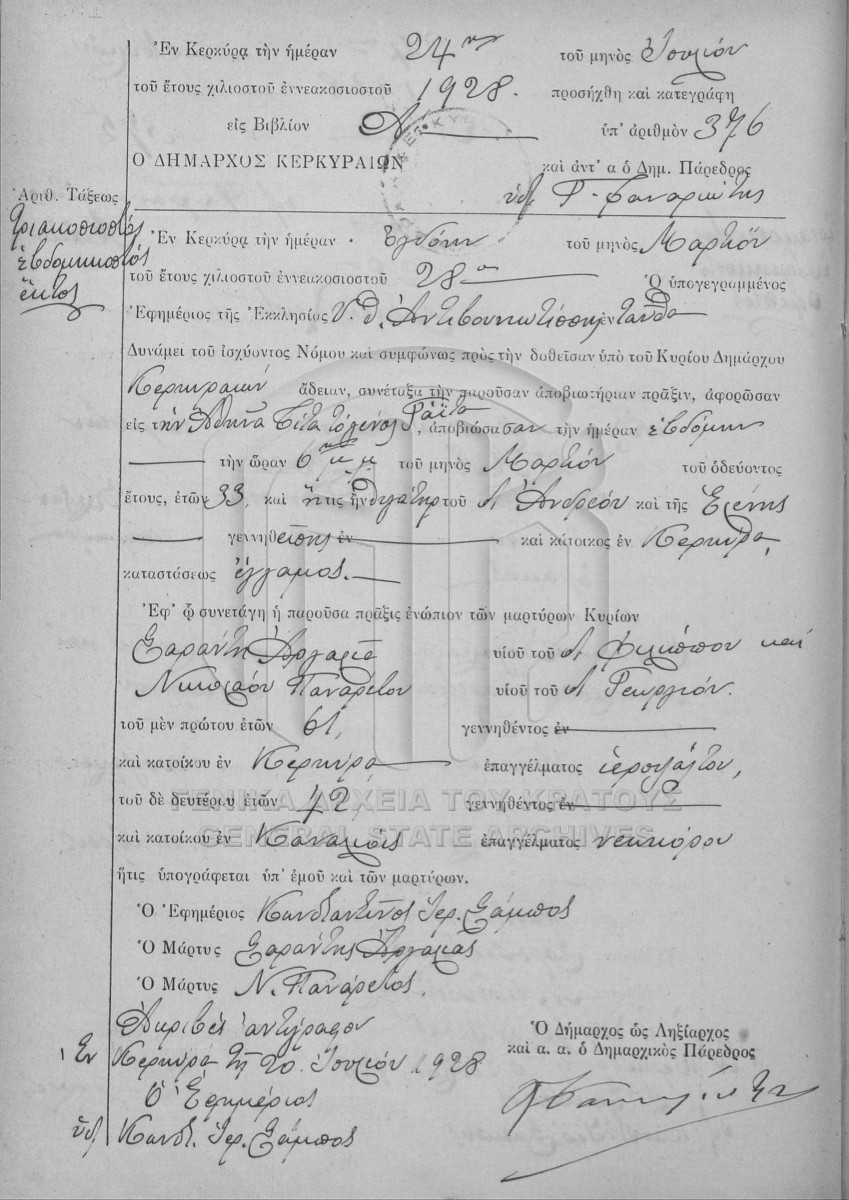 Ἐν Κερκύρᾳ τὴν ἡμέραν 24ην τοῦ μηνὸς Ἰουλίου
τοῦ ἔτους χιλιοστοῦ ἐννεακοσιοστοῦ 1928. προσήχθη καὶ κατεγράφη
εἰς Βιβλίον Α ὑπ' ἀριθμὸν 376
Ο ΔΗΜΑΡΧΟΣ ΚΕΡΚΥΡΑΙΩΝ καὶ ἀντ' α ὁ Δημ. Πάρεδρος
Ἀριθ. Τάξεως
Τριακοσιοστός
ἑβδομηκοστός
ἕκτος
Ἐν Κερκύρᾳ τὴν ἡμέραν ἑβδόμην τοῦ μηνὸς Μαρτίου
τοῦ ἔτους χιλιοστοῦ ἐννεακοσιοστοῦ 28ου Ὁ ὑπογεγραμμένος
Ἐφημέριος τῆς Ἐκκλησίας Υ. Θ. Ἀντιβουνιωτίσσης ἐνταῦθα
Δυνάμει τοῦ ἰσχύοντος Νόμου καὶ συμφώνως πρὸς τὴν δοθεῖσαν ὑπὸ τοῦ Κυρίου Δημάρχου
Κερκυραίων ἄδειαν, συνέταξα τὴν παροῦσαν ἀποβιωτήριαν πρᾶξιν, ἀφορῶσαν
εἰς τὴν Ἀθηνᾶ τὸ γένος, ἀποβιώσασαν τὴν ἡμέραν ἑβδόμην
τὴν ὥραν 6 μ.μ. τοῦ μηνὸς Μαρτίου τοῦ ὁδεύοντος
ἔτους, ἐτῶν 33, καὶ ἥτις ἦν θυγάτηρ τοῦ Ἀνδρέου καὶ τῆς Ἑλένης
γεννηθείσης ἐν καὶ κάτοικος ἐν Κερκύρᾳ,
καταστάσεως ἔγγαμος.
Ἐφ' ᾧ συνετάγη ἡ παροῦσα πρᾶξις ἐνώπιον τῶν μαρτύρων Κυρίων
Σαράντη υἱοῦ τοῦ Φιλίππου καὶ
Νικολάου Παναρέτου υἱοῦ τοῦ Γεωργίου.
τοῦ μὲν πρώτου ἐτῶν 61, γεννηθέντος ἐν
καὶ κατοίκου ἐν Κερκύρᾳ ἐπαγγέλματος ἱεροψάλτου,
τοῦ δὲ δευτέρου ἐτῶν 42, γεννηθέντος ἐν
ΓΕΝΙΚΑ ΑΡΧΕΙΑ ΤΟΥ ΚΡΑΤΟΥΣ
GENERAL STATE ARCHIVES
καὶ κατοίκου ἐν Καναλίοις ἐπαγγέλματος νεωκόρου
ἥτις ὑπογράφεται ὑπ' ἐμοῦ καὶ τῶν μαρτύρων.
Ὁ Ἐφημέριος Κωνσταντῖνος Ἱερ. Σάμπος
Ὁ Μάρτυς Σαράντης
Ὁ Μάρτυς Ν. Πανάρετος.
Ἀκριβὲς ἀντίγραφον
Ἐν Κερκύρᾳ τῇ 20 Ἰουλίου 1928
Ὁ Ἐφημέριος
Κωνστ. Ἱερ. Σάμπος
Ὁ Δήμαρχος ὡς Ληξίαρχος
καὶ α. α. ὁ Δημαρχικὸς Πάρεδρος